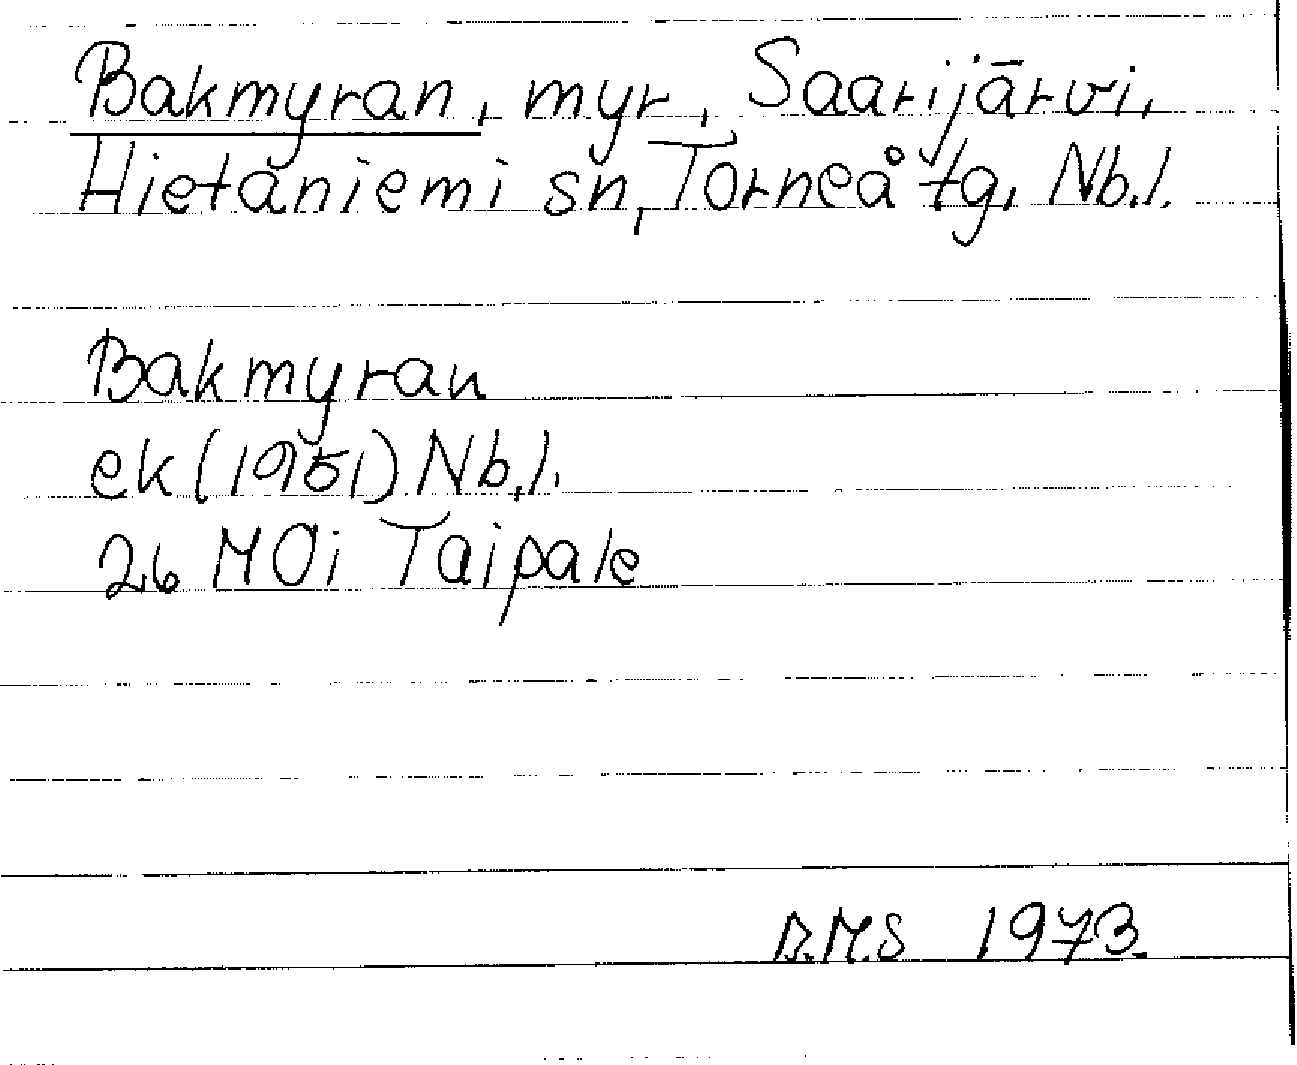 Bakmyran, myr, Saarijärvi,
Hietaniemi sn, Torneå tg, Nb.l.
Bakmyran
ek (1961) Nb.l.
26 MOi Taipale
B.M.S 1973.